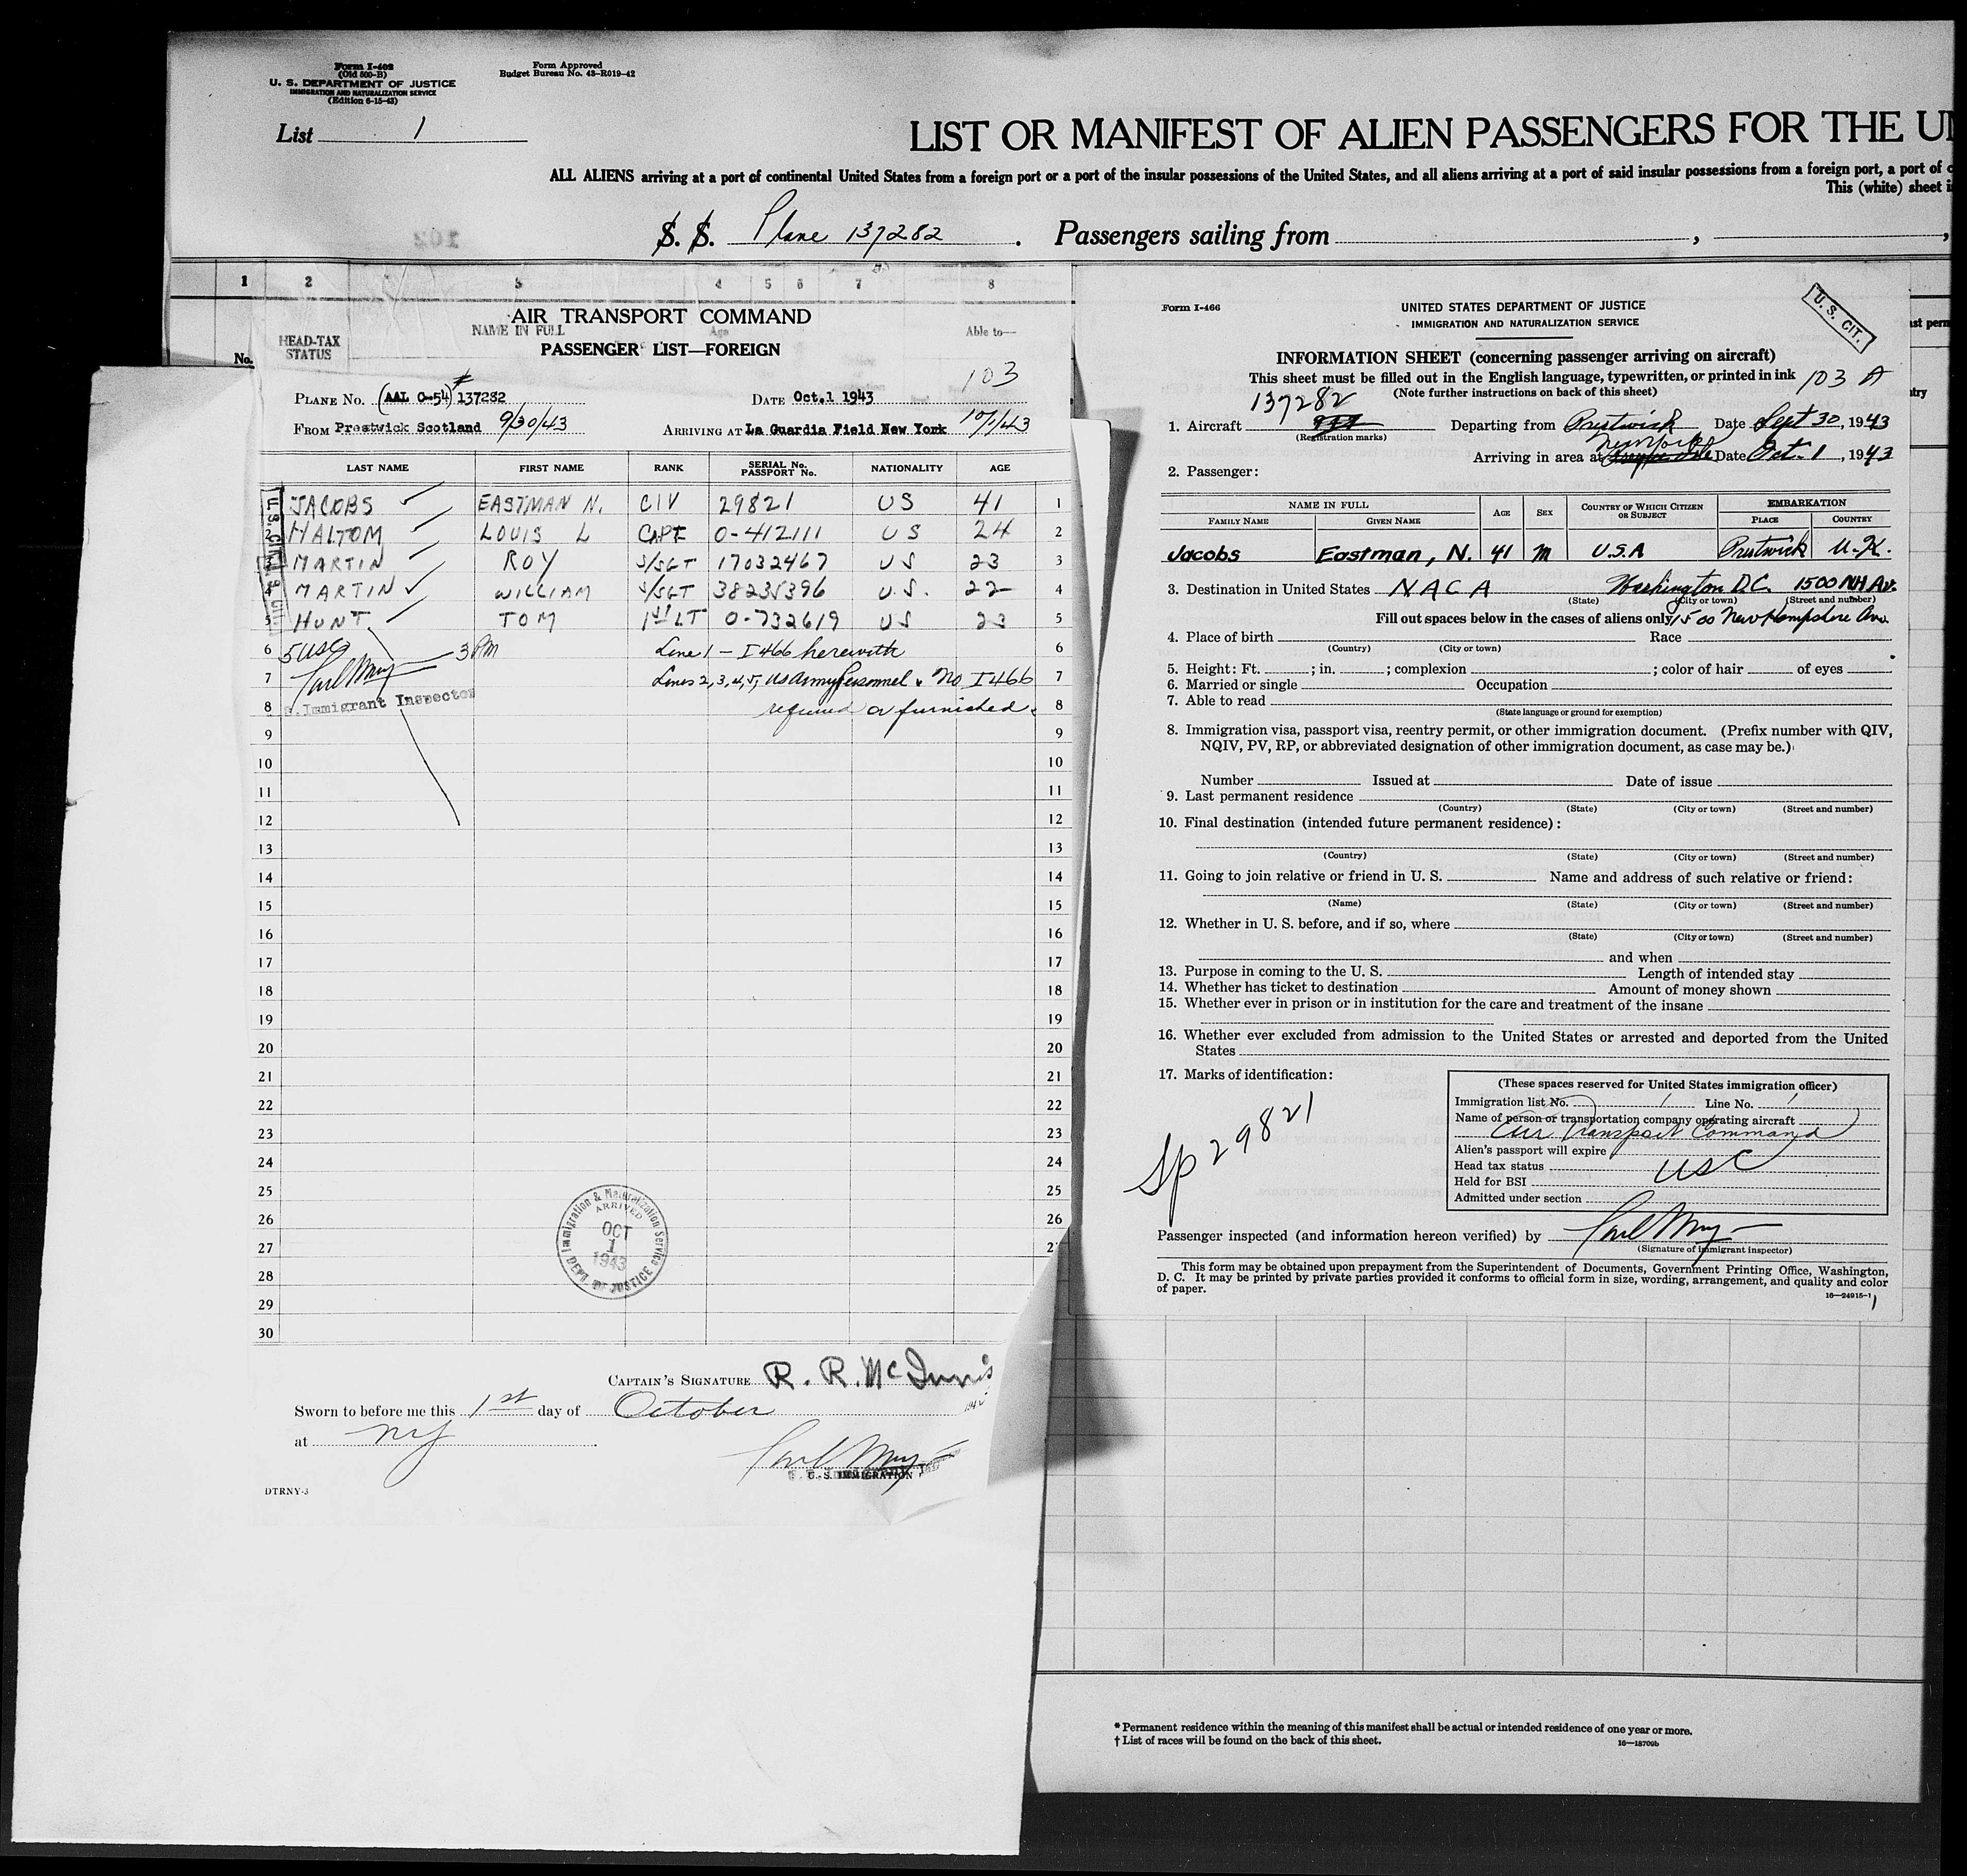 Form I-402
(Old 500-B)
U. S. DEPARTMENT OF JUSTICE
IMMIGRATION AND NATURALIZATION SERVICE
(Edition 6-15-43)
Form Approved
Budget Bureau No. 43-R019-42
List 1
LIST OR MANIFEST OF ALIEN PASSENGERS FOR THE UN
ALL ALIENS arriving at a port of continental United States from a foreign port or a port of the insular possessions of the United States, and all aliens arriving at a port of said insular possessions from a foreign port, a port of c
This (white) sheet i
S. S. Plane 137282 . Passengers sailing from , ,
1 2 3 4 5 6 7 8
No. HEAD-TAX STATUS NAME IN FULL Age Able to—
AIR TRANSPORT COMMAND
PASSENGER LIST—FOREIGN
103
PLANE No. (AAL C-54) # 137282 DATE Oct.1 1943
FROM Prestwick Scotland 9/30/43 ARRIVING AT La Guardia Field New York 10/1/43
LAST NAME FIRST NAME RANK SERIAL No. PASSPORT No. NATIONALITY AGE
JACOBS EASTMAN N. CIV 29821 US 41 1
2 HALTOM LOUIS L CAPT 0-412111 US 24 2
3 MARTIN ROY S/SGT 17032467 US 23 3
4 MARTIN WILLIAM S/SGT 38235396 U.S. 22 4
5 HUNT TOM 1st LT 0-732619 US 23 5
6 5 USC 3 PM Line 1 – I 466 herewith 6
7 Lines 2, 3, 4, 5, US Army Personnel. No I 466 7
8 Immigrant Inspector required or furnished. 8
9 9
10 10
11 11
12 12
13 13
14 14
15 15
16 16
17 17
18 18
19 19
20 20
21 21
22 22
23 23
24 24
25 25
26 26
27 2
28
29
30
Immigration & Naturalization Service
ARRIVED
OCT
1
1943
DEPT. OF JUSTICE
CAPTAIN'S SIGNATURE R. R. McInnis
Sworn to before me this 1st day of October 194
at NY
Paul May
U. S. IMMIGRATION
DTRNY-3
Form I-466
UNITED STATES DEPARTMENT OF JUSTICE
IMMIGRATION AND NATURALIZATION SERVICE
U. S. CIT.
INFORMATION SHEET (concerning passenger arriving on aircraft)
This sheet must be filled out in the English language, typewritten, or printed in ink
(Note further instructions on back of this sheet)
103 A
137282
1. Aircraft Departing from Prestwick Date Sept 30, 1943
(Registration marks)
Arriving in area at New York Date Oct. 1, 1943
2. Passenger:
NAME IN FULL AGE SEX COUNTRY OF WHICH CITIZEN OR SUBJECT EMBARKATION
FAMILY NAME GIVEN NAME PLACE COUNTRY
Jacobs Eastman, N. 41 M U.S.A Prestwick U.K.
3. Destination in United States NACA Washington D.C. 1500 NH Av.
(State) (City or town) (Street and number)
Fill out spaces below in the cases of aliens only 1500 New Hampshire Ave.
4. Place of birth Race
(Country) (City or town)
5. Height: Ft. ; in. ; complexion ; color of hair of eyes
6. Married or single Occupation
7. Able to read
(State language or ground for exemption)
8. Immigration visa, passport visa, reentry permit, or other immigration document. (Prefix number with QIV,
NQIV, PV, RP, or abbreviated designation of other immigration document, as case may be.)
Number Issued at Date of issue
9. Last permanent residence
(Country) (State) (City or town) (Street and number)
10. Final destination (intended future permanent residence):
(Country) (State) (City or town) (Street and number)
11. Going to join relative or friend in U. S. Name and address of such relative or friend:
(Name) (State) (City or town) (Street and number)
12. Whether in U. S. before, and if so, where
(State) (City or town) (Street and number)
and when
13. Purpose in coming to the U. S. Length of intended stay
14. Whether has ticket to destination Amount of money shown
15. Whether ever in prison or in institution for the care and treatment of the insane
16. Whether ever excluded from admission to the United States or arrested and deported from the United
States
17. Marks of identification:
Sp 29821
(These spaces reserved for United States immigration officer)
Immigration list No. 1 Line No. 1
Name of person or transportation company operating aircraft
Air Transport Command
Alien's passport will expire
Head tax status USC
Held for BSI
Admitted under section
Passenger inspected (and information hereon verified) by Paul May
(Signature of immigrant inspector)
This form may be obtained upon prepayment from the Superintendent of Documents, Government Printing Office, Washington,
D. C. It may be printed by private parties provided it conforms to official form in size, wording, arrangement, and quality and color
of paper.
16—24915-1
* Permanent residence within the meaning of this manifest shall be actual or intended residence of one year or more.
† List of races will be found on the back of this sheet.
16—18709b